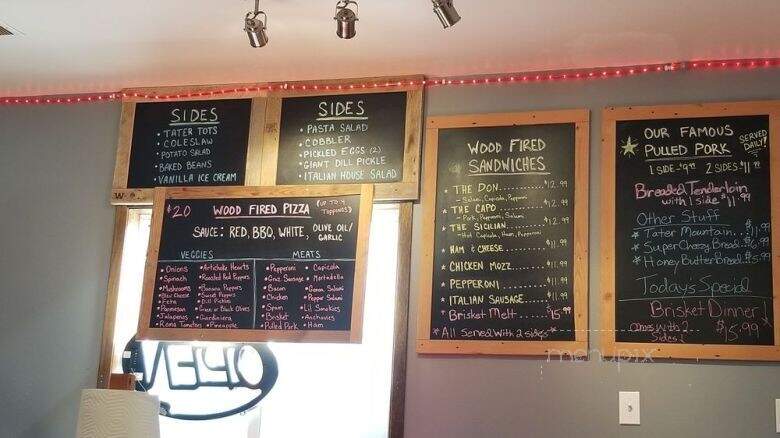 SIDES
• TATER TOTS
• COLESLAW
• POTATO SALAD
• BAKED BEANS
• VANILLA ICE CREAM
SIDES
• PASTA SALAD
• COBBLER
• PICKLED EGGS (2)
• GIANT DILL PICKLE
• ITALIAN HOUSE SALAD
$20 WOOD FIRED PIZZA (UP TO 4 TOPPINGS)
SAUCE: RED, BBQ, WHITE, OLIVE OIL/
GARLIC
VEGGIES
• Onions
• Spinach
• Mushrooms
• Bleu Cheese
• Feta
• Parmesan
• Jalapenos
• Roma Tomatoes
• Artichoke Hearts
• Roasted Red Peppers
• Banana Peppers
• Sweet Peppers
• Dill Pickles
• Green or Black Olives
• Giardiniera
• Pineapple
MEATS
• Pepperoni
• Gnd. Sausage
• Bacon
• Chicken
• Spam
• Brisket
• Pulled Pork
• Capicola
• Mortadella
• Genoa Salami
• Pepper Salami
• Lil Smokies
• Anchovies
• Ham
WOOD FIRED
SANDWICHES
* THE DON.......... $12.99
- Salami, Capicola, Pepperoni
* THE CAPO.......... $12.99
- Pork, Pepperoni, Salami
* THE SICILIAN.......... $12.99
- Hot Capicola, Ham, Pepperoni
HAM & CHEESE.......... $11.99
* CHICKEN MOZZ.......... $11.99
* PEPPERONI.......... $11.99
* ITALIAN SAUSAGE.......... $11.99
* BRISKET MELT.......... $15.99
* All SERVED WITH 2 SIDES*
OUR FAMOUS
PULLED PORK
SERVED
DAILY!
1 SIDE $9.99 2 SIDES $11.99
Breaded Tenderloin
with 1 side $11.99
Other Stuff
* Tater Mountain...$11.99
* Super Cheesy Bread..$6.99
* Honey Butter Bread..$5.99
Todays Special
BRISKET DINNER
comes with 2
Sides $15.99
OPEN
menupix